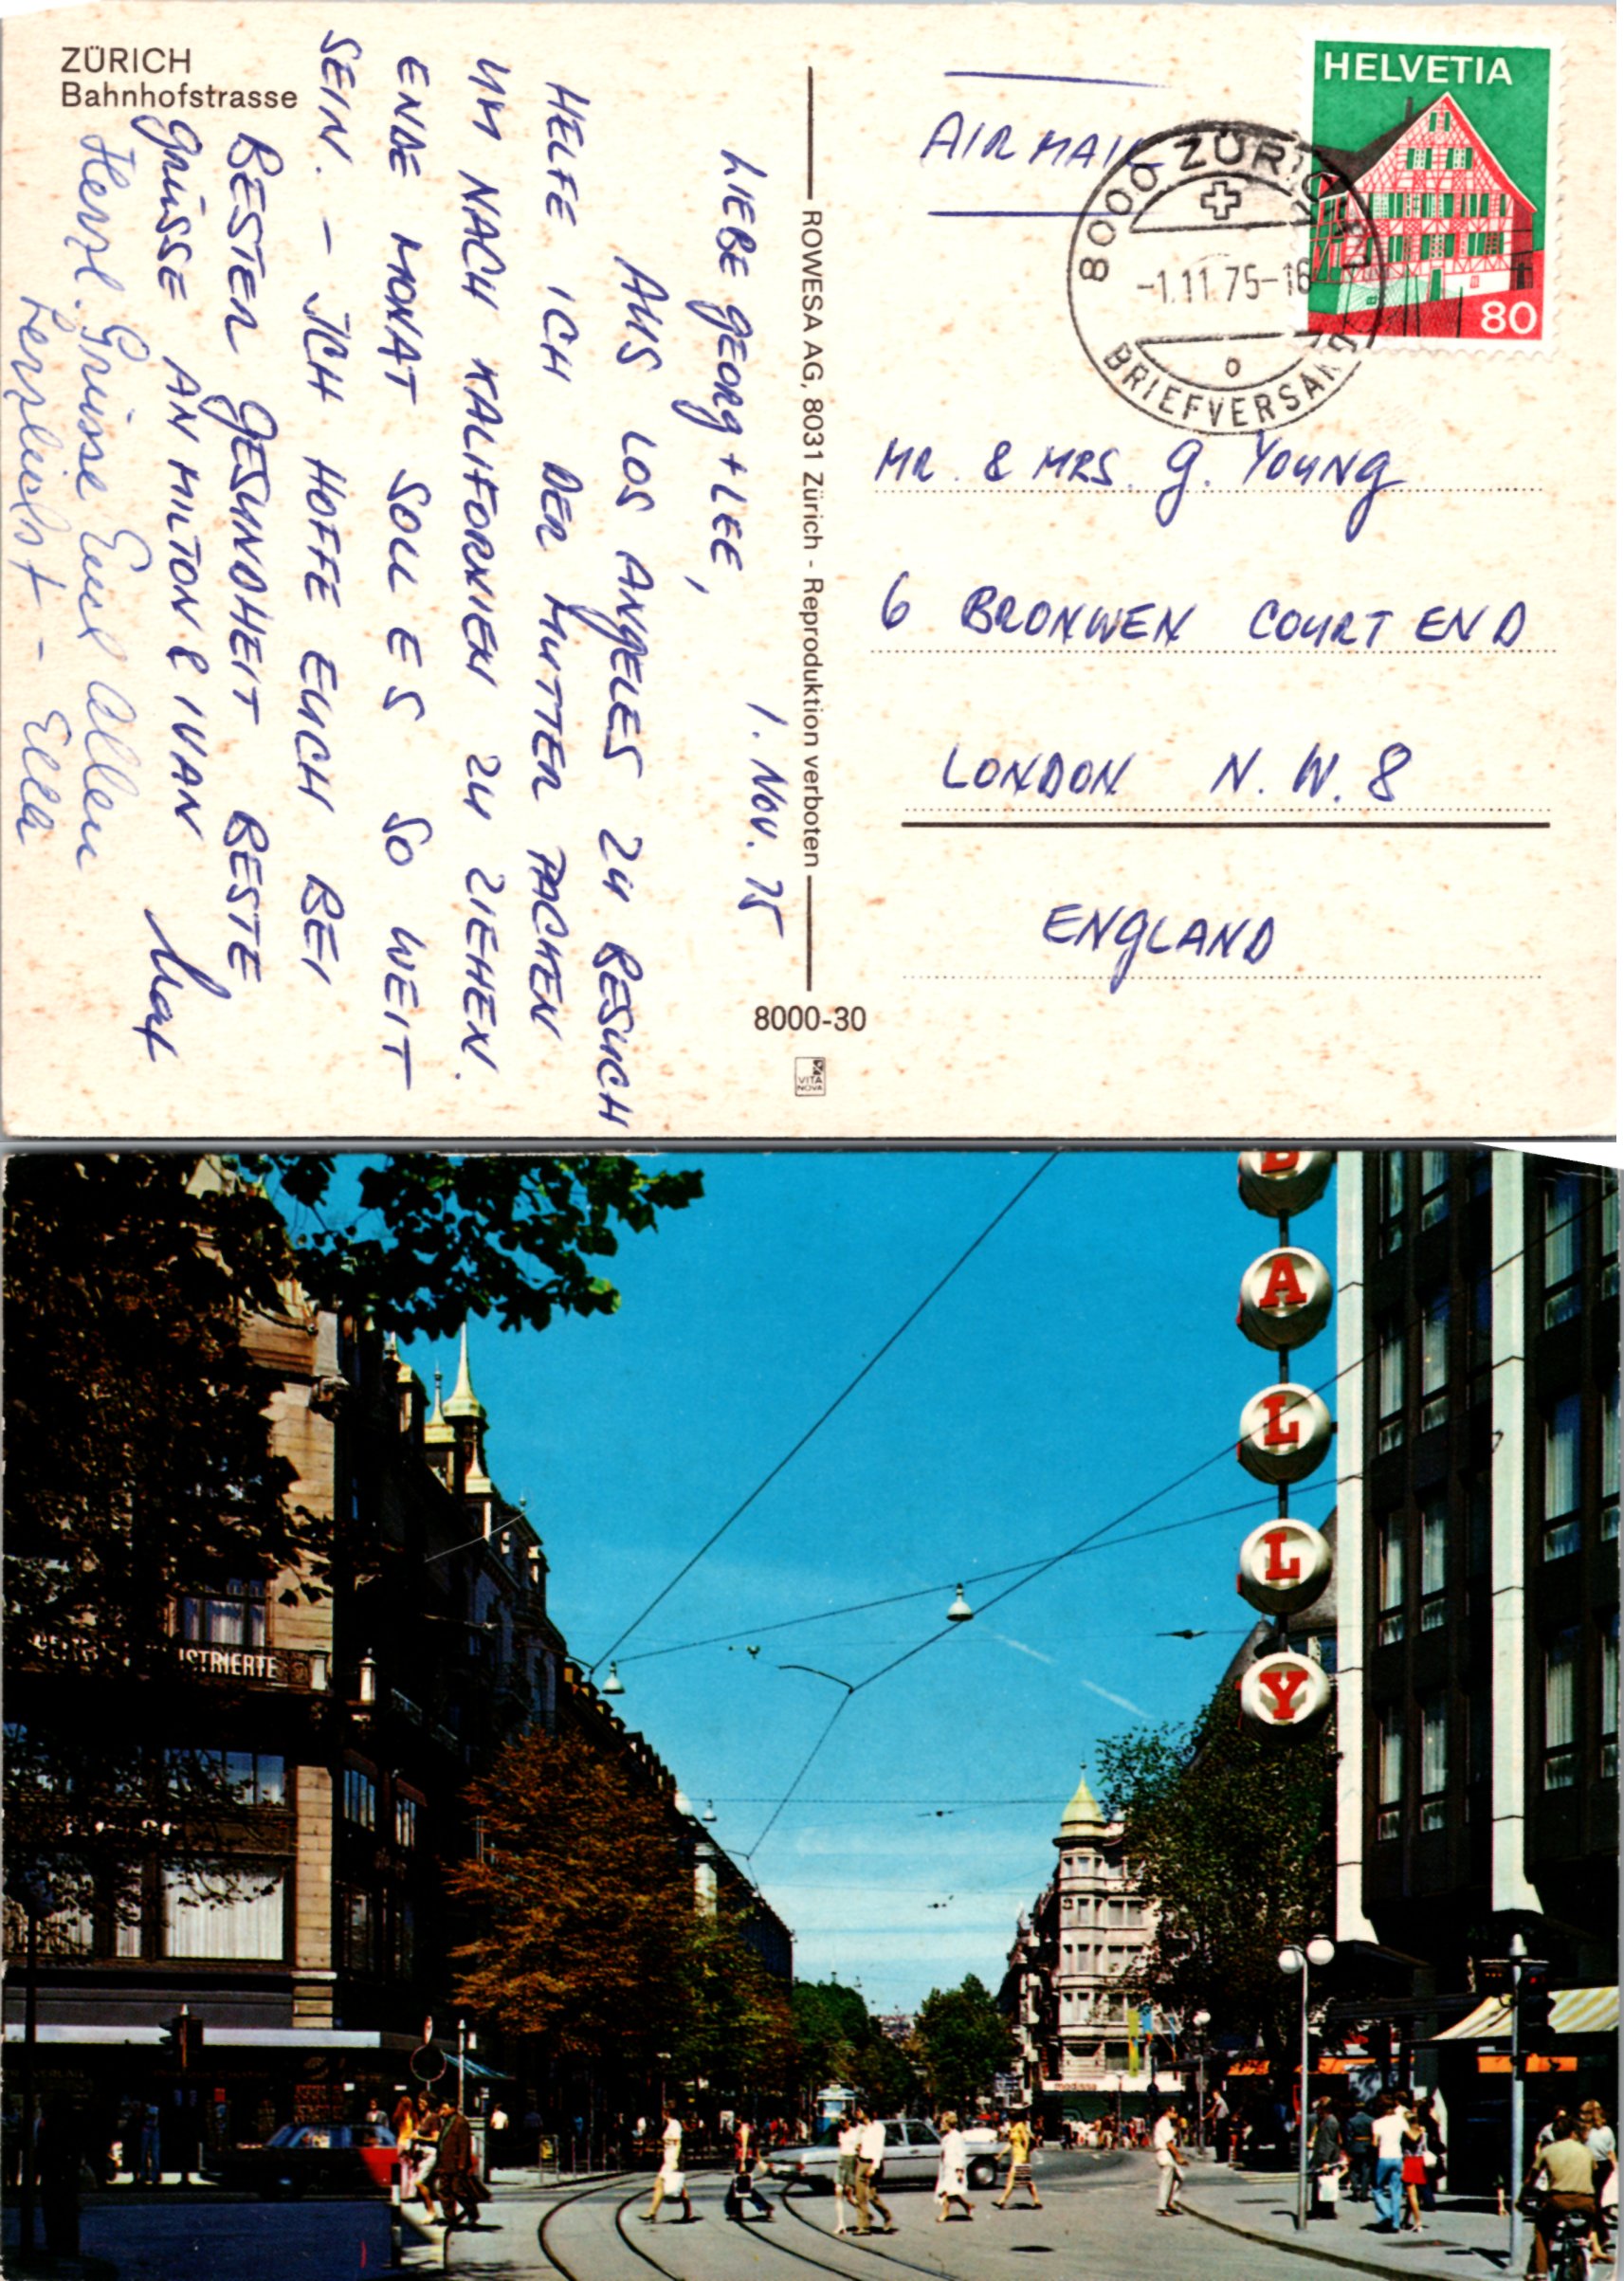 ZÜRICH
Bahnhofstrasse
1. NOV. 75
LIEBE GEORG + LEE,
AUS LOS ANGELES ZU BESUCH
HELFE ICH DER MUTTER PACKEN
UM NACH KALIFORNIEN ZU ZIEHEN.
ENDE MONAT SOLL ES SO WEIT
SEIN. – ICH HOFFE EUCH BEI
BESTER GESUNDHEIT BESTE
GRÜSSE AN MILTON & IVAN
Herzl. Grüsse Euch Allen
Herzlichst – Ella
ROWESA AG, 8031 Zürich - Reproduktion verboten
8000-30
VITA
NOVA
AIR MAIL
HELVETIA
80
8000 ZÜRICH
-1.11.75-16
BRIEFVERSAND
MR. & MRS. G. YOUNG
6 BRONWEN COURT END
LONDON N.W.8
ENGLAND
BALLY
ISTRIERTE